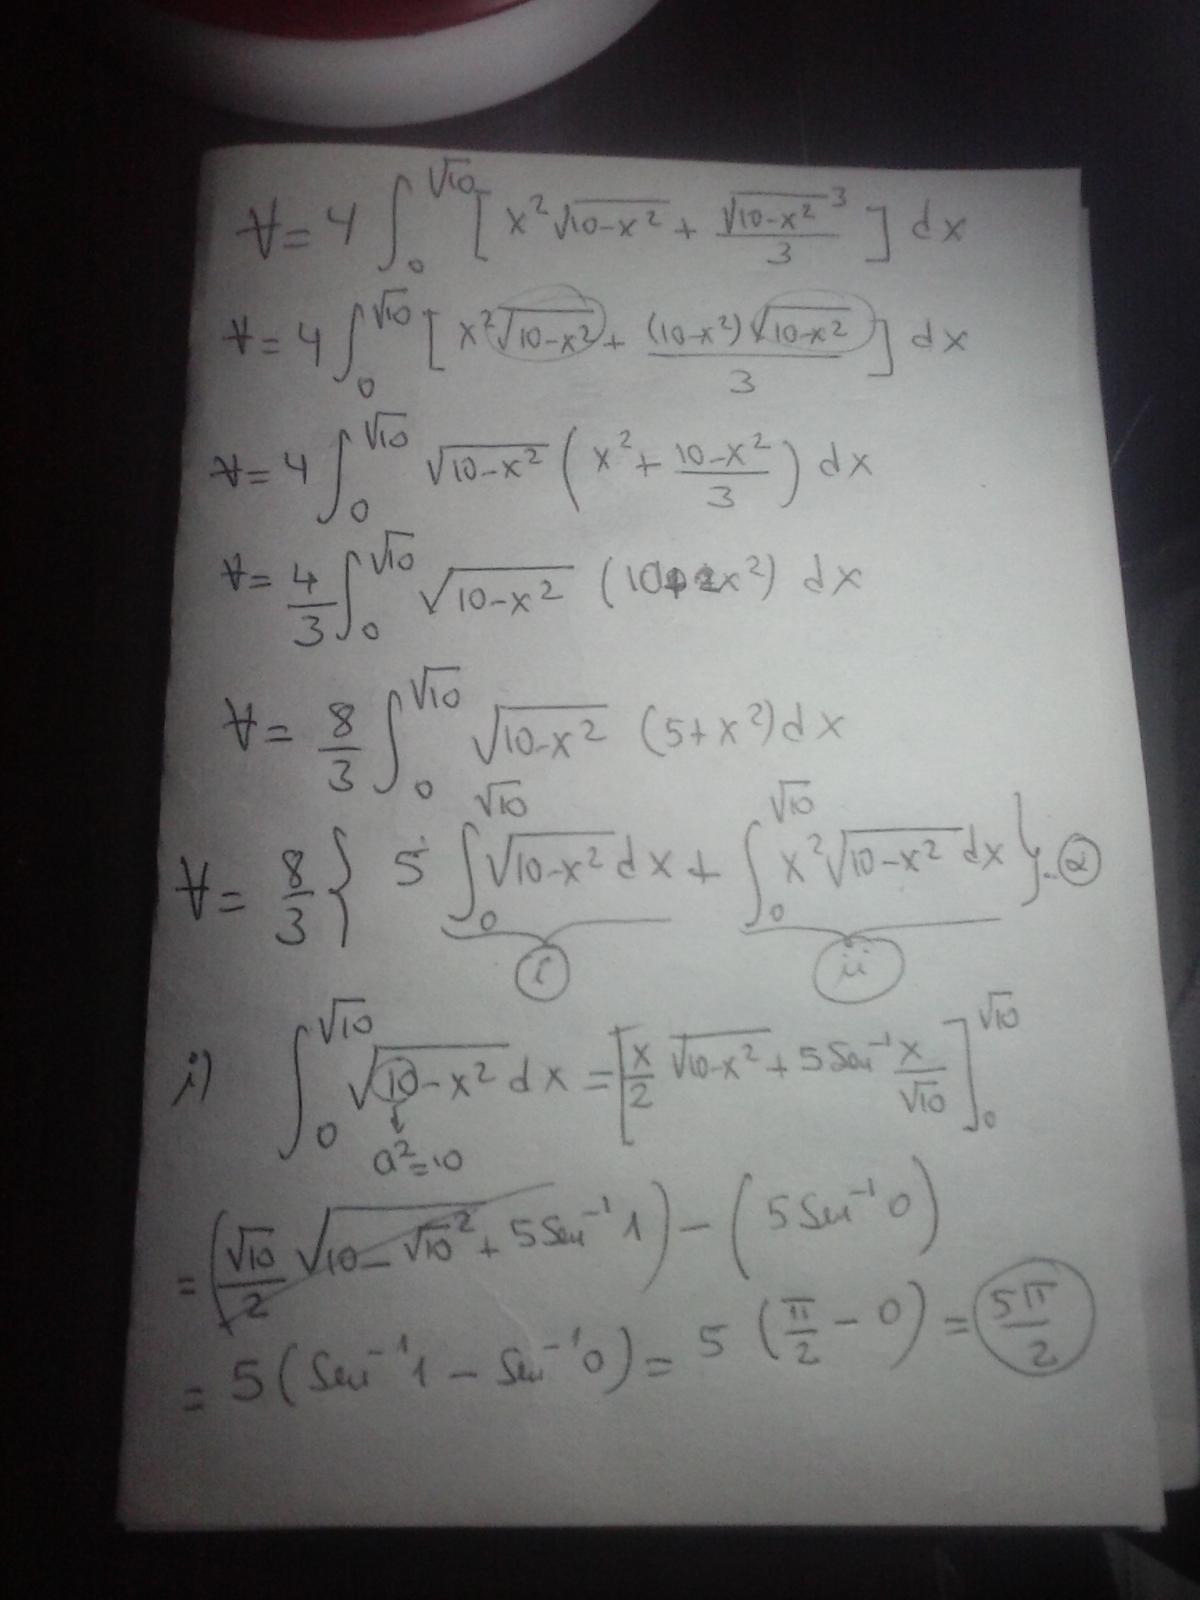 V = 4 ∫₀^√10 [ x²√(10-x²) + √(10-x²)³/3 ] dx
V = 4 ∫₀^√10 [ x²√(10-x²) + (10-x²)√(10-x²)/3 ] dx
V = 4 ∫₀^√10 √(10-x²) ( x² + (10-x²)/3 ) dx
V = 4/3 ∫₀^√10 √(10-x²) (10+2x²) dx
V = 8/3 ∫₀^√10 √(10-x²) (5+x²) dx
V = 8/3 { 5 ∫₀^√10 √(10-x²) dx + ∫₀^√10 x²√(10-x²) dx } .. α
i ii
i) ∫₀^√10 √(10-x²) dx = [ x/2 √(10-x²) + 5 Sen⁻¹ x/√10 ]₀^√10
a²=10
= ( √10/2 √(10-√10²) + 5 Sen⁻¹ 1 ) - ( 5 Sen⁻¹ 0 )
= 5 ( Sen⁻¹ 1 - Sen⁻¹ 0 ) = 5 ( π/2 - 0 ) = 5π/2